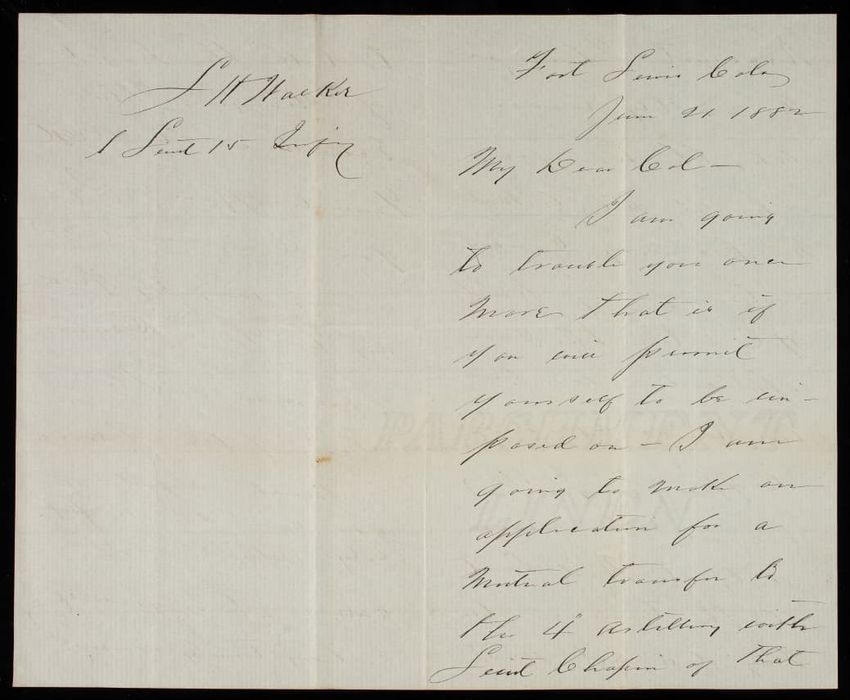 S H Walker
1 Lieut 15 Infy
Fort Lewis Colo
June 21 1882
My Dear Col —
I am going
to trouble you once
more that is if
you will permit
yourself to be im-
posed on — I am
going to make an
application for a
mutual transfer to
the 4" artillery with
Lieut Chapin of that